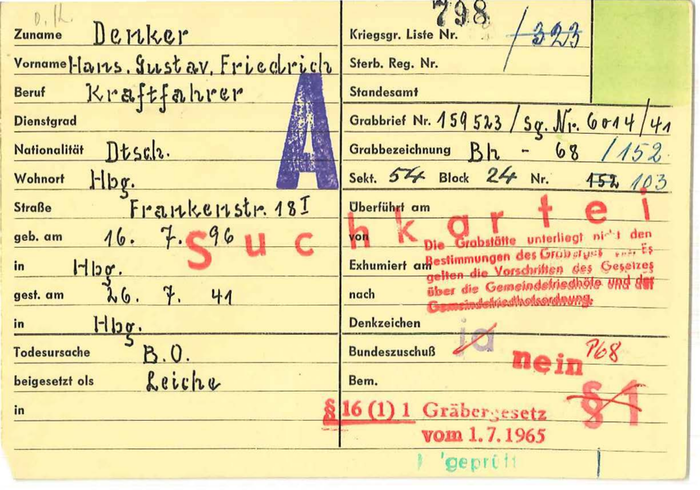 798
Zuname Denker
Kriegsgr. Liste Nr. / 323
Vorname Hans, Gustav, Friedrich
Sterb. Reg. Nr.
Beruf Kraftfahrer
Standesamt
Dienstgrad
Grabbrief Nr. 159523 / Sg. Nr. 6014/41
Nationalität Dtsch.
Grabbezeichnung Bh - 68 / 152
A
Wohnort Hbg.
Sekt. 54 Block 24 Nr. 152 103
Straße Frankenstr. 18 I
Überführt am
Suchkartei
geb. am 16. 7. 96
von
Die Grabstätte unterliegt nicht den
Bestimmungen des
Es
in Hbg.
Exhumiert am
gelten die Vorschriften des Gesetzes
über die Gemeindefriedhöfe und der
Gemeindefriedhofsordnung.
gest. am 26. 7. 41
nach
in Hbg.
Denkzeichen
Todesursache B.O.
Bundeszuschuß ja nein P68
beigesetzt als Leiche
Bem. § 1
in
§ 16 (1) 1 Gräbergesetz
vom 1.7.1965
geprüft